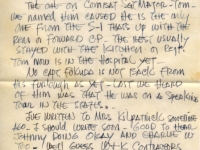 THE CAT ON COMBAT SGT MAJOR - TOM -
WE NAMED HIM CAUSED HE IS THE ONLY
ONE FROM THE S-1 THATS UP WITH THE
IN FORWARD CP. THE REST USUALLY
STAYED WITH THE KITCHEN OR REGT.
TOM NOW IS IN THE HOSPITAL YET -
NO CAPT FOKUDA IS NOT BACK FROM
HIS FURLOUGH AS YET - LAST WE HEARD
OF HIM WAS THAT HE WAS ON A SPEAKING
TOUR IN THE STATES. -
I'VE WRITTEN TO MRS KILPATRICK SOMETIME
AGO. I SHOULD WRITE SOON - GOOD TO HEAR
JOHNNY DOING OKAY AND CHARLIE IN
TOO - WELL GUESS